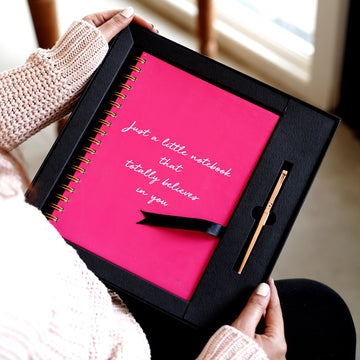 Just a little notebook
that
totally believes
in you